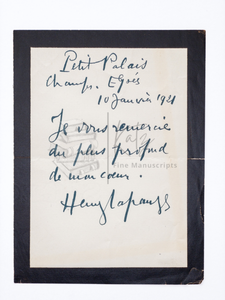 Petit Palais
Champs. Elysés
10 Janvier 1921
Je vous remercie
du plus profond
de mon cœur.
Henry Lapauze
Fine Manuscripts